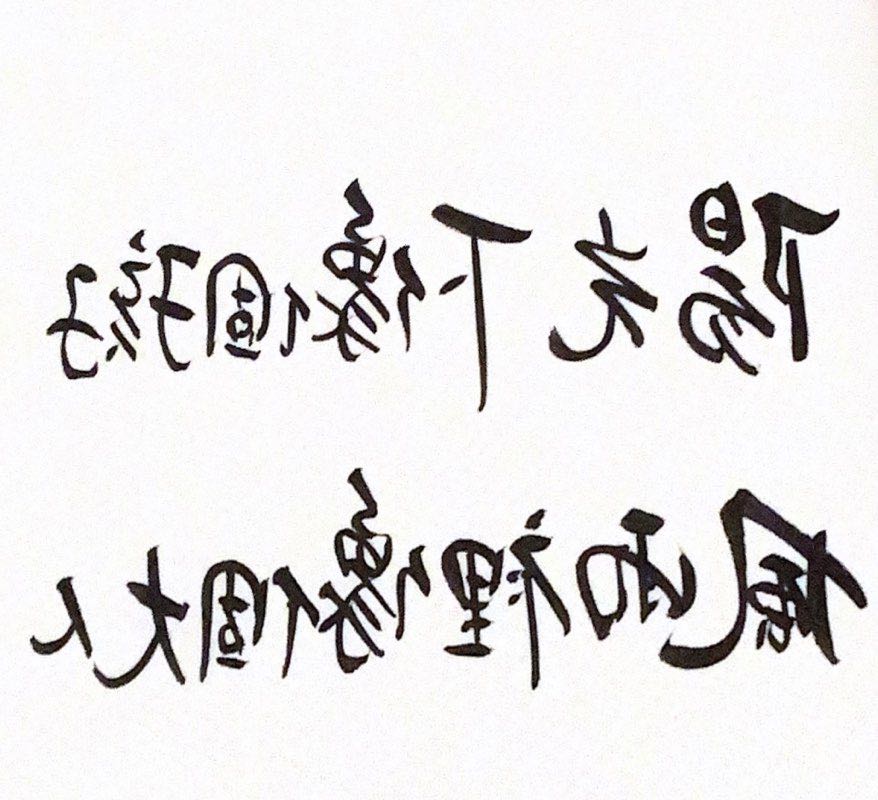 陽光下像個孩子
風雨裡像個大人